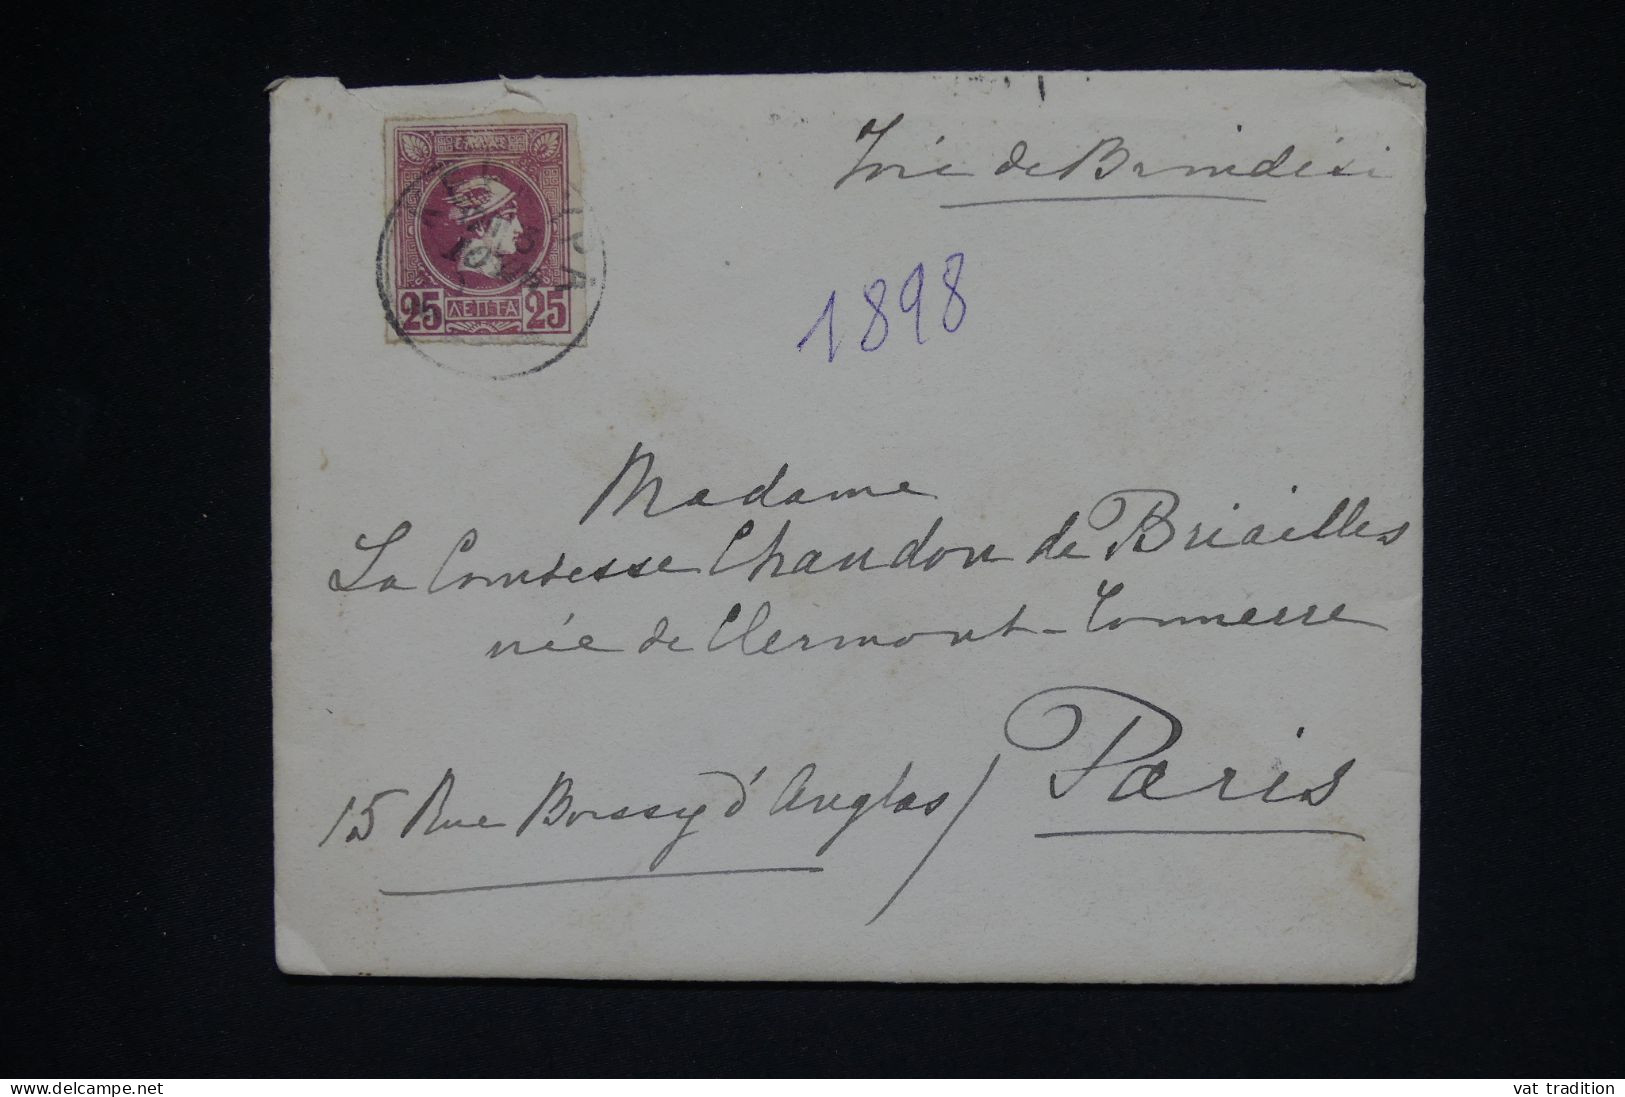 Voie de Brindisi
ΕΛΛΑΣ
25 ΛΕΠΤΑ 25
1898
Madame
La Comtesse Chandon de Briailles
née de Clermont-Tonnerre
15 Rue Boissy d'Anglas / Paris
www.delcampe.net
vat tradition